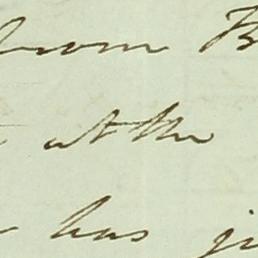 from B
at the
has gi